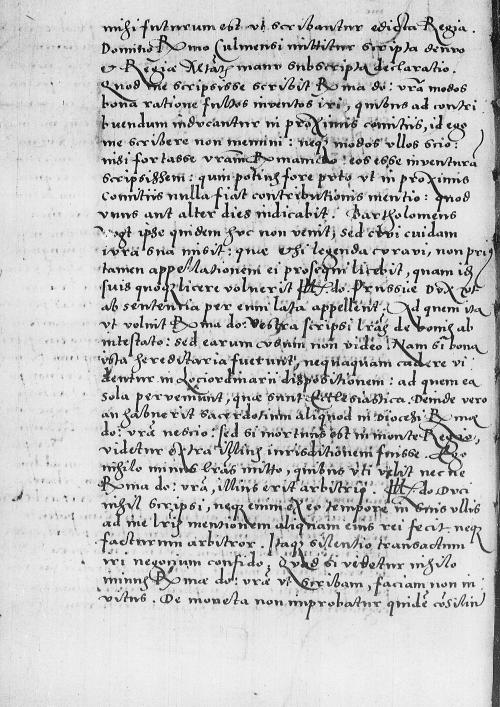 mihi futurum est vt scribantur edicta Regia.
Domino R mo Culmensi mittitur scripta denuo
et Regiæ M tatis manu subscripta declaratio.
Quod me scripsisse scribit R ma do: vra modos
bona ratione fultos inventos iri, quibus ad contri
buendum inducantur in proximis comitiis, id ego
me scribere non memini: neq modos vllos scio:
nisi fortasse vram R mam do: eos esse inventura
scripsissem: quum potius fore puto vt in proximis
Comitiis nulla fiat contributionis mentio: quod
vnus aut alter dies indicabit. Bartholomeus
Vogt ipse quidem huc non venit, sed civi cuidam
iura sua misit: quæ ibi legenda curavi, non pri9
tamen appellationem ei prosequi licebit, quam id
suis quoq licere voluerit Ill. do. Prussiæ Dux vt
ab sententia per eum lata appellent. Ad quem ita
vt voluit R ma do: vestra scripsi lras de bonis ab
intestato: sed earum vsum non video. Nam si bona
ista hereditaria fuerunt, nequaquam cadere vi
dentur in Loci ordinarii dispositionem: ad quem ea
sola perveniunt, quæ sunt Ecclesiastica. Deinde vero
an habuerit sacerdotium aliquod in Diocesi R mæ
do: vræ nescio: sed si mortuus est in monte Regio,
videtur extra illius iurisditionem fuisse. Ego
nihilo minus lras mitto, quibus vti velit nec ne
R ma do: vra, illius erit arbitrii. Ill. do. Duci
nihil scripsi, neq enim ex eo tempore in suis vllis
ad me lris mentionem aliquam eius rei fecit neq
facturum arbitror. Itaq silentio transactum
iri negotium confido. Quod si videtur nihilo
minus R mæ do: vræ vt scribam, faciam non in
vitus. De moneta non improbatur quide cōsiliū